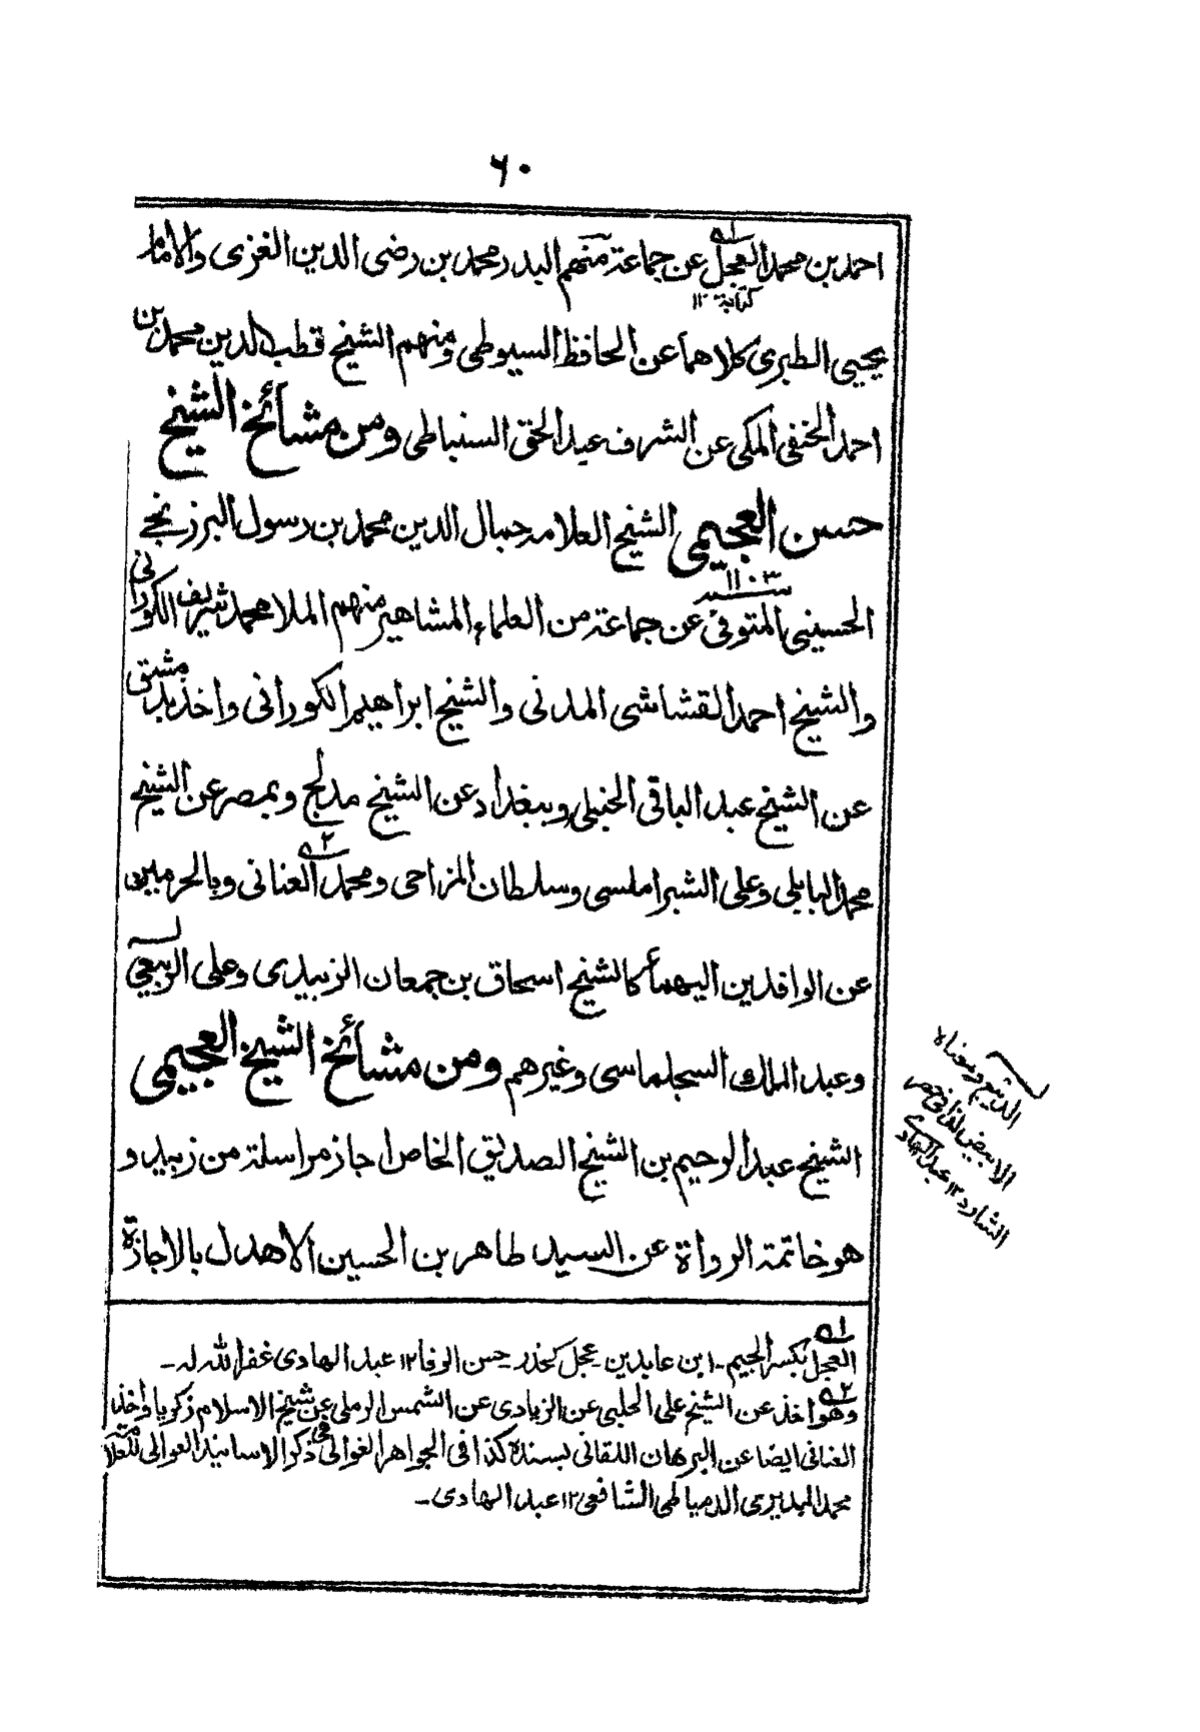 ٦٠
احمد بن محمد العجل عن جماعة منهم البدر محمد بن رضى الدين الغزى والامام
كتابة ١٢
يحيى الطبرى كلاهما عن الحافظ السيوطى ومنهم الشيخ قطب الدين محمد بن
احمد الحنفى المكى عن الشرف عبد الحق السنباطى ومن مشائخ الشيخ
حسن العجيمى الشيخ العلامه جمال الدين محمد بن رسول البرزنجے
الحسينى المتوفى سنة ١١٠٣ عن جماعة من العلماء المشاهير منهم الملا محمد شريف الكورانى
والشيخ احمد القشاشى المدنى والشيخ ابراهيم الكورانى واخذ بدمشق
عن الشيخ عبد الباقى الحنبلى وببغداد عن الشيخ مدلج وبمصر عن الشيخ
محمد البابلى وعلى الشبراملسى وسلطان المزاحى ومحمد العنانى وبالحرمين
عن الوافدين اليهما كالشيخ اسحاق بن جمعان الزبيدى وعلى الربيعى
وعبد الملك السجلماسى وغيرهم ومن مشائخ الشيخ العجيمى
الشيخ عبد الرحيم بن الشيخ الصديق الخاص اجاز مراسلة من زبيد و
هو خاتمة الرواة عن السيد طاهر بن الحسين الاهدل بالاجازة
الديبع ومعناه
الابيض
الشارد ١٢ عبد الهادى
١ے العجل بكسر الجيم۔ ابن عابدين۔ عجل كحذر۔ حسن الوفا ١٢ عبد الهادى غفر الله له۔
٢ے وهو اخذ عن الشيخ على الحلبى عن الزيادى عن الشمس الرملى عن شيخ الاسلام زكريا واخذ
العنانى ايضا عن البرهان اللقانى بسنده كذا فى الجواهر الغوالى فى ذكر الاسانيد العوالى للعلامة
محمد البديرى الدمياطى الشافعى ١٢ عبد الهادى۔